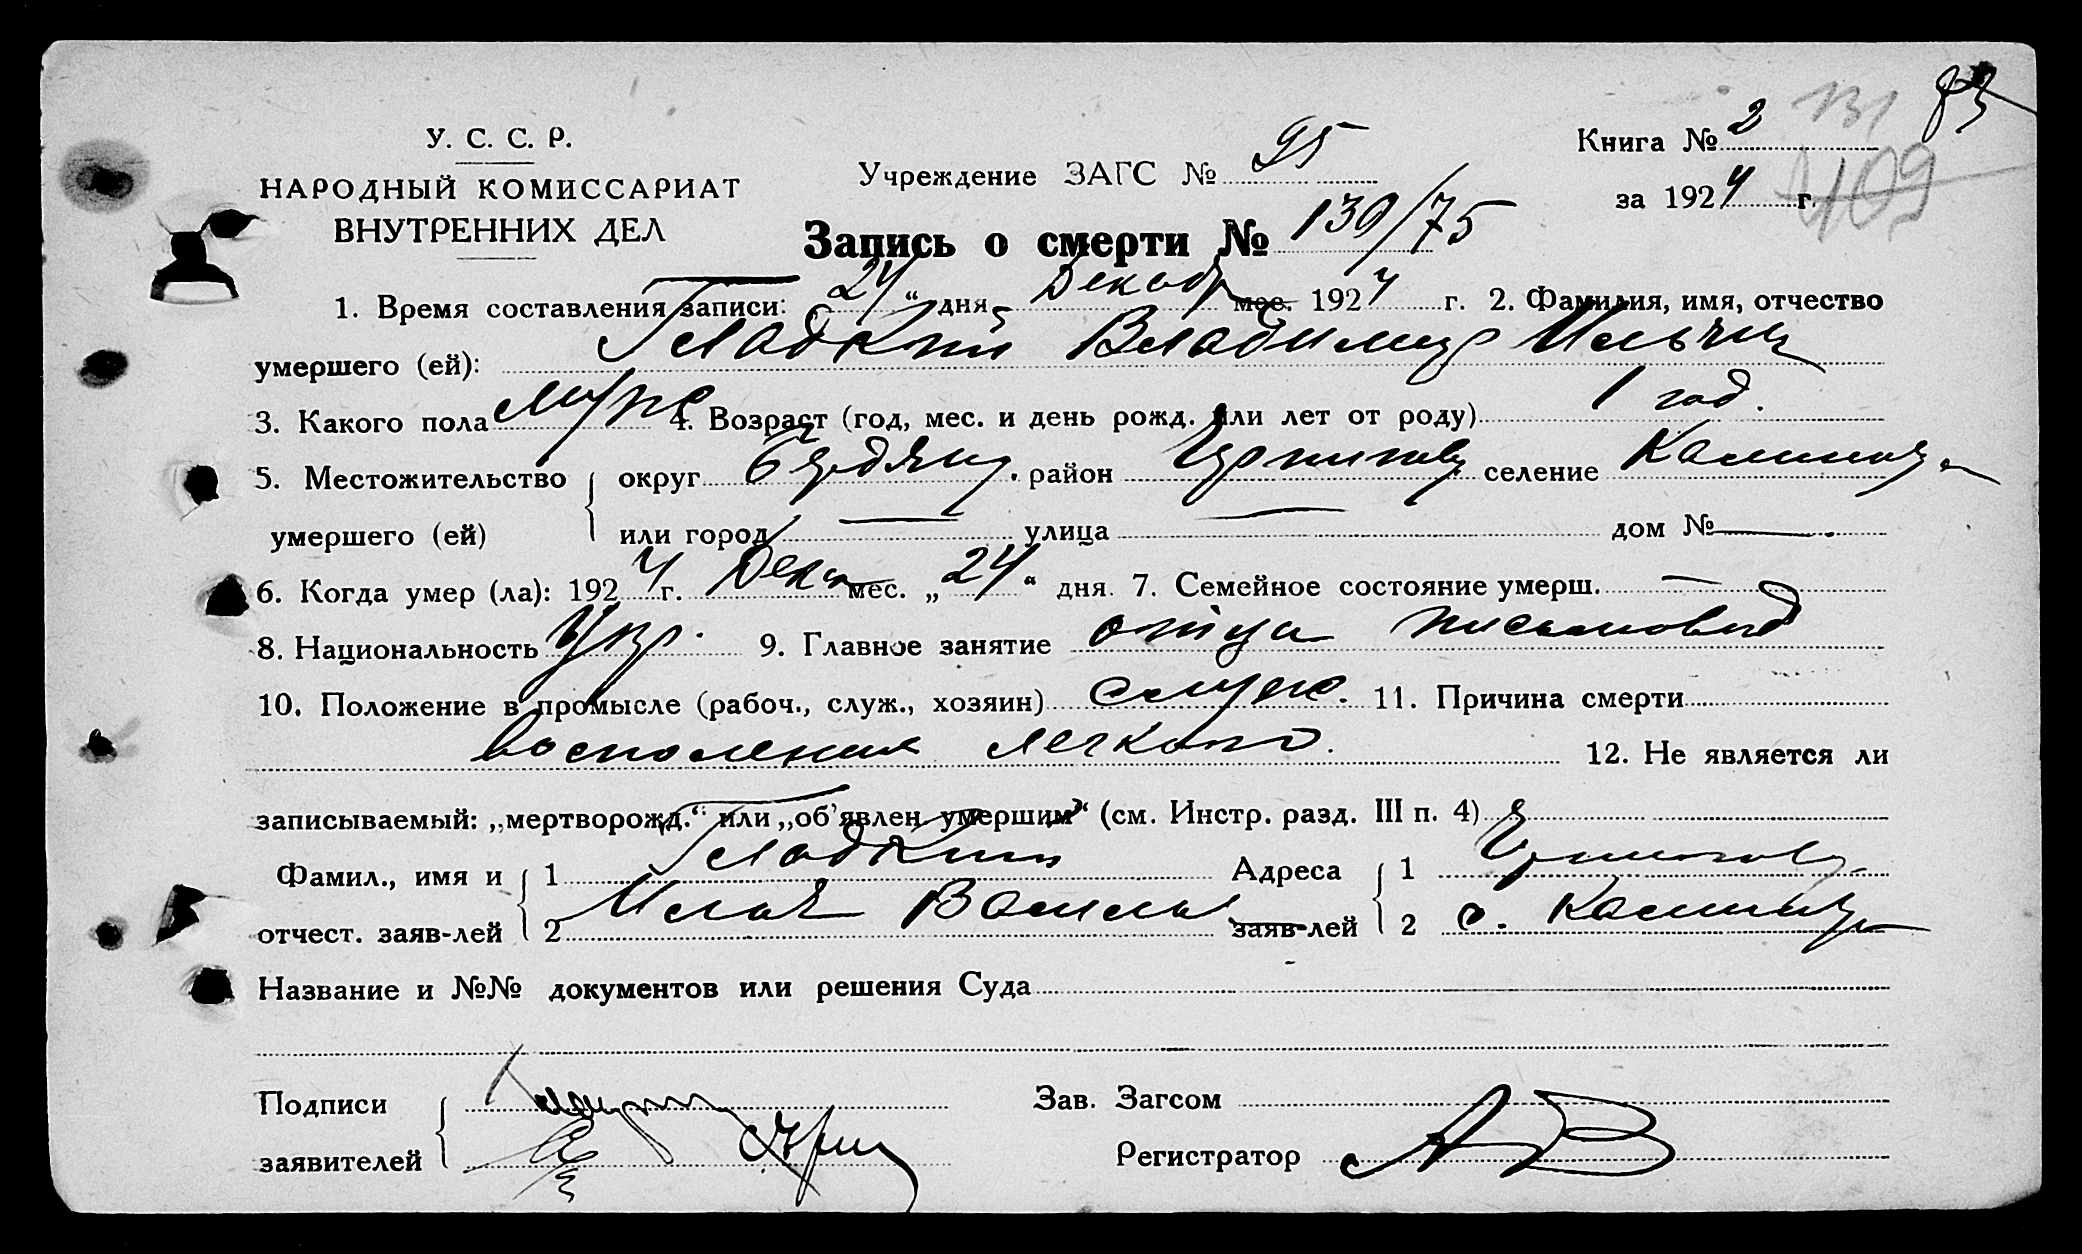 131 83
У. С. С. Р.
НАРОДНЫЙ КОМИССАРИАТ
ВНУТРЕННИХ ДЕЛ
Учреждение ЗАГС № 95
Книга № 2
за 1924 г. 409
Запись о смерти № 130/75
1. Время составления записи: „24“ дня Декабр мес. 1924 г. 2. Фамилия, имя, отчество
умершего (ей): Гладкий Владимир Ильич
3. Какого пола Муж 4. Возраст (год, мес. и день рожд. или лет от роду) 1 год.
5. Местожительство округ Бердян. район селение
умершего (ей) или город — улица — дом № —
6. Когда умер (ла): 1924 г. Дека мес. „24“ дня. 7. Семейное состояние умерш. —
8. Национальность Укр. 9. Главное занятие отца письмовод
10. Положение в промысле (рабоч., служ., хозяин) служ. 11. Причина смерти
воспаления легкого. 12. Не является ли
записываемый: „мертворожд.“ или „об'явлен умершим“ (см. Инстр. разд. III п. 4)
Фамил., имя и 1 Гладкий Адреса 1
отчест. заяв-лей 2 Илья Васильев заяв-лей 2 с.
Название и №№ документов или решения Суда
Подписи Зав. Загсом
заявителей Регистратор